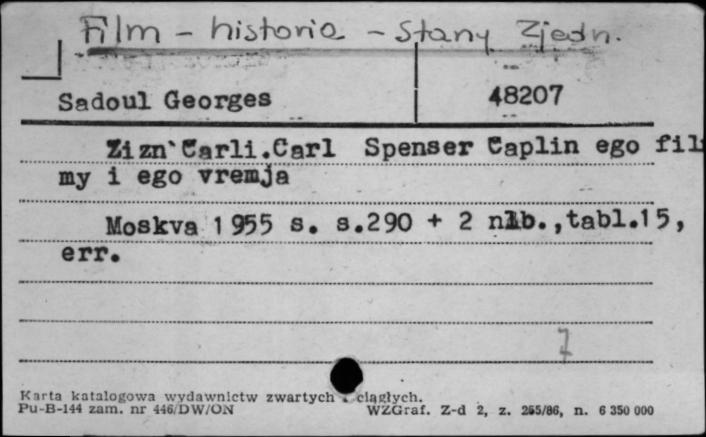 Film - historia - Stany Zjedn.
Sadoul Georges 48207
Zizn`Carli.Carl Spenser Caplin ego fil
my i ego vremja
Moskva 1955 s. s.290 + 2 nlb.,tabl.15,
err.
7
Karta katalogowa wydawnictw zwartych i ciągłych.
Pu-B-144 zam. nr 446/DW/ON WZGraf. Z-d 2, z. 265/86, n. 6 350 000